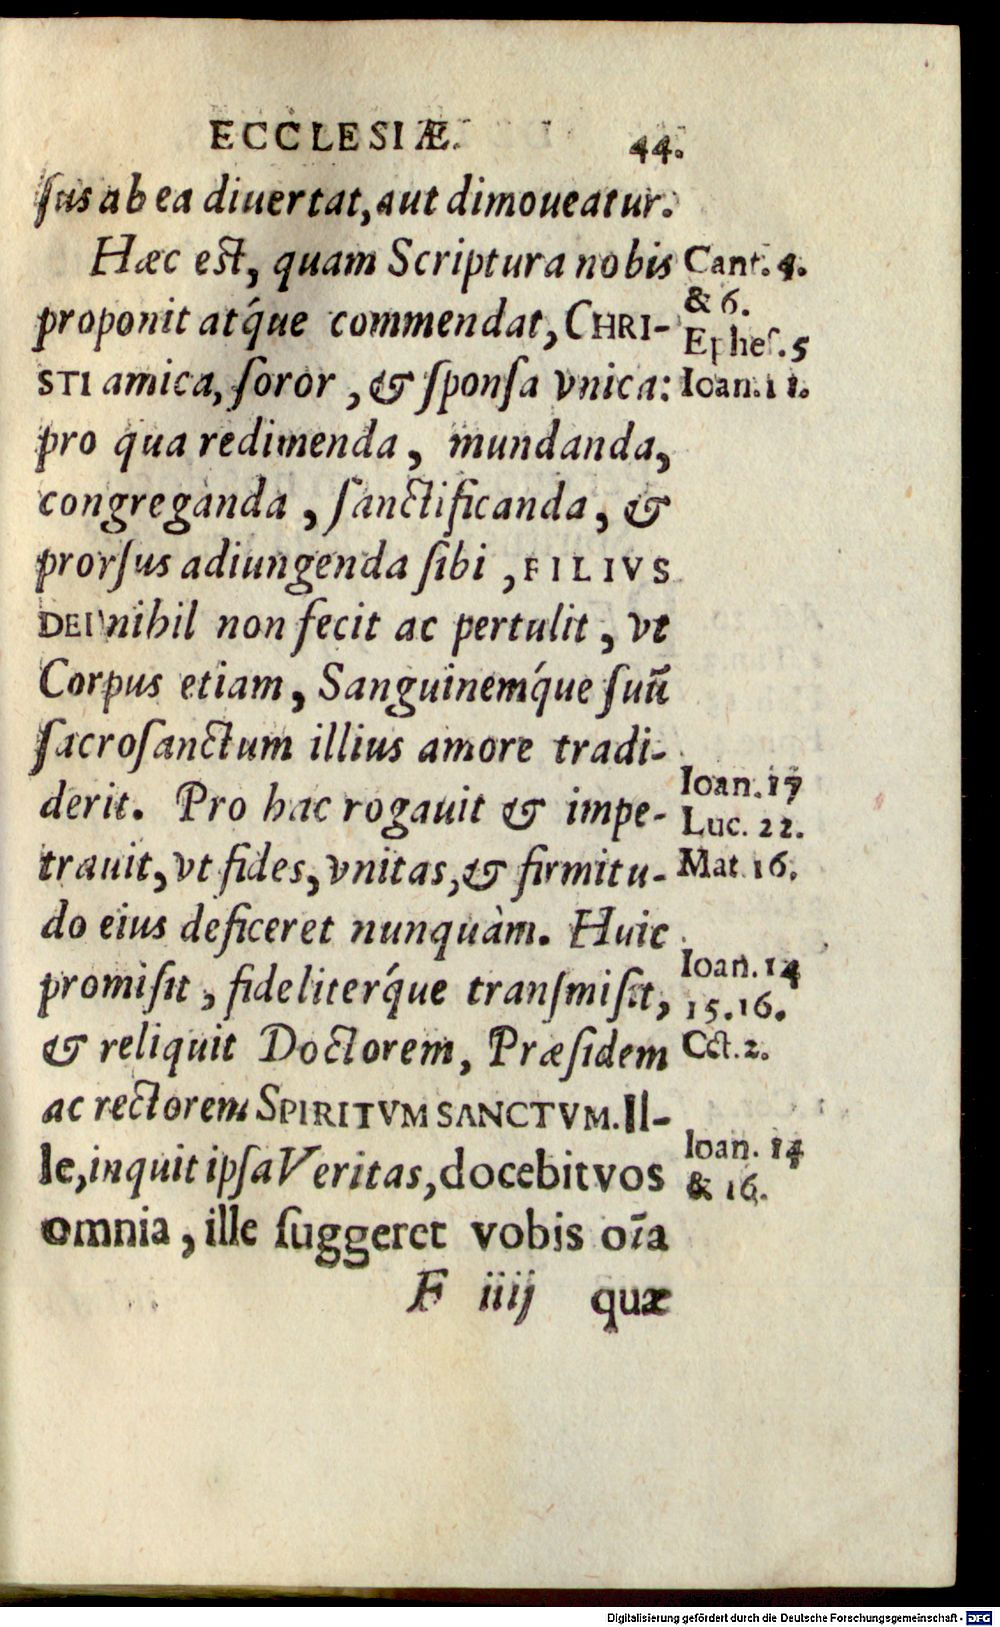 ECCLESIÆ. 44.
ſus ab ea diuertat, aut dimoueatur.
Hæc est, quam Scriptura nobis
proponit atq́ue commendat, CHRI-
STI amica, ſoror, & ſponſa vnica:
pro qua redimenda, mundanda,
congreganda, ſanctificanda, &
prorſus adiungenda ſibi, FILIVS
DEI nihil non fecit ac pertulit, vt
Corpus etiam, Sanguinemq́ue ſuũ
ſacroſanctum illius amore tradi-
derit. Pro hac rogauit & impe-
trauit, vt fides, vnitas, & firmitu-
do eius deficeret nunquàm. Huic
promiſit, fideliterq́ue tranſmiſit,
& reliquit Doctorem, Præſidem
ac rectorem SPIRITVM SANCTVM. Il-
le, inquit ipſa Veritas, docebit vos
omnia, ille ſuggeret vobis oĩa
F iiij quæ
Cant. 4.
& 6.
Epheſ. 5
Ioan. 11.
Ioan. 17
Luc. 22.
Mat 16.
Ioan. 14
15. 16.
Cct. 2.
Ioan. 14
& 16.
Digitalisierung gefördert durch die Deutsche Forschungsgemeinschaft - DFG